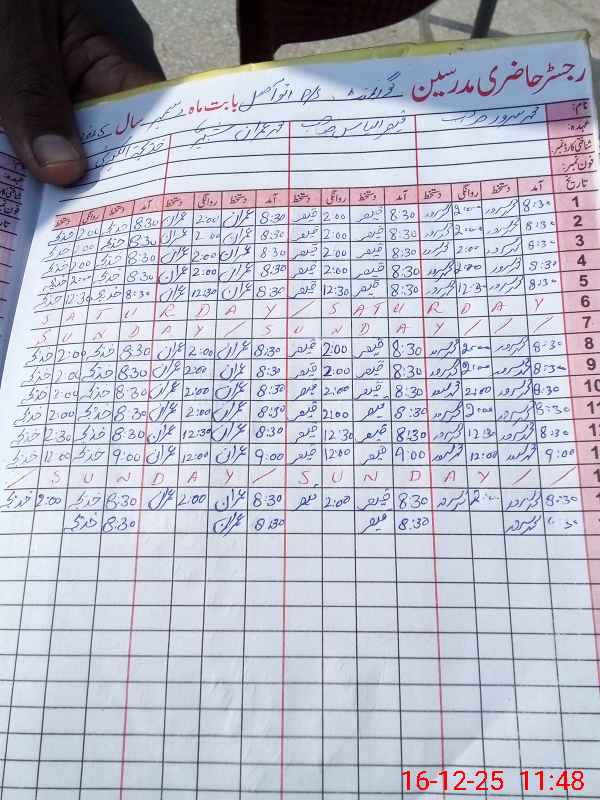 رجسٹر حاضری مدرسین گورنمنٹ P/S بابت ماہ دسمبر سال
نام: محمد سرور صاحب قیصر الماس صاحب محمد عمران شبیر خدیجۃ الکبریٰ
عہدہ:
شناختی کارڈ نمبر:
فون نمبر:
تاریخ آمد دستخط روانگی دستخط آمد دستخط روانگی دستخط آمد دستخط روانگی دستخط آمد دستخط روانگی دستخط
1 8:30 سرور 2:00 سرور 8:30 قیصر 2:00 قیصر 8:30 عمران 2:00 عمران 8:30 خدیجہ 2:00 خدیجہ
2 8:30 سرور 2:00 سرور 8:30 قیصر 2:00 قیصر 8:30 عمران 2:00 عمران 8:30 خدیجہ 2:00 خدیجہ
3 8:30 سرور 2:00 سرور 8:30 قیصر 2:00 قیصر 8:30 عمران 2:00 عمران 8:30 خدیجہ 2:00 خدیجہ
4 8:30 سرور 2:00 سرور 8:30 قیصر 2:00 قیصر 8:30 عمران 2:00 عمران 8:30 خدیجہ 2:00 خدیجہ
5 8:30 سرور 12:30 سرور 8:30 قیصر 12:30 قیصر 8:30 عمران 12:30 عمران 8:30 خدیجہ 12:30 خدیجہ
S A T U R D A Y / S A T U R D A Y 6
S U N D A Y / / S U N D A Y / / / 7
8 8:30 سرور 2:00 سرور 8:30 قیصر 2:00 قیصر 8:30 عمران 2:00 عمران 8:30 خدیجہ 2:00 خدیجہ
9 8:30 سرور 2:00 سرور 8:30 قیصر 2:00 قیصر 8:30 عمران 2:00 عمران 8:30 خدیجہ 2:00 خدیجہ
10 8:30 سرور 2:00 سرور 8:30 قیصر 2:00 قیصر 8:30 عمران 2:00 عمران 8:30 خدیجہ 2:00 خدیجہ
8:30 سرور 2:00 سرور 8:30 قیصر 2:00 قیصر 8:30 عمران 2:00 عمران 8:30 خدیجہ 2:00 خدیجہ
8:30 سرور 12:30 سرور 8:30 قیصر 12:30 قیصر 8:30 عمران 12:30 عمران 8:30 خدیجہ 12:30 خدیجہ
9:00 سرور 12:00 سرور 9:00 قیصر 12:00 قیصر 9:00 عمران 12:00 عمران 9:00 خدیجہ 12:00 خدیجہ
/ S U N D A Y / S U N D A Y / /
8:30 سرور 2:00 سرور 8:30 قیصر 2:00 قیصر 8:30 عمران 2:00 عمران 8:30 خدیجہ 2:00 خدیجہ
8:30 سرور 8:30 قیصر 8:30 عمران 8:30 خدیجہ
16-12-25 11:48